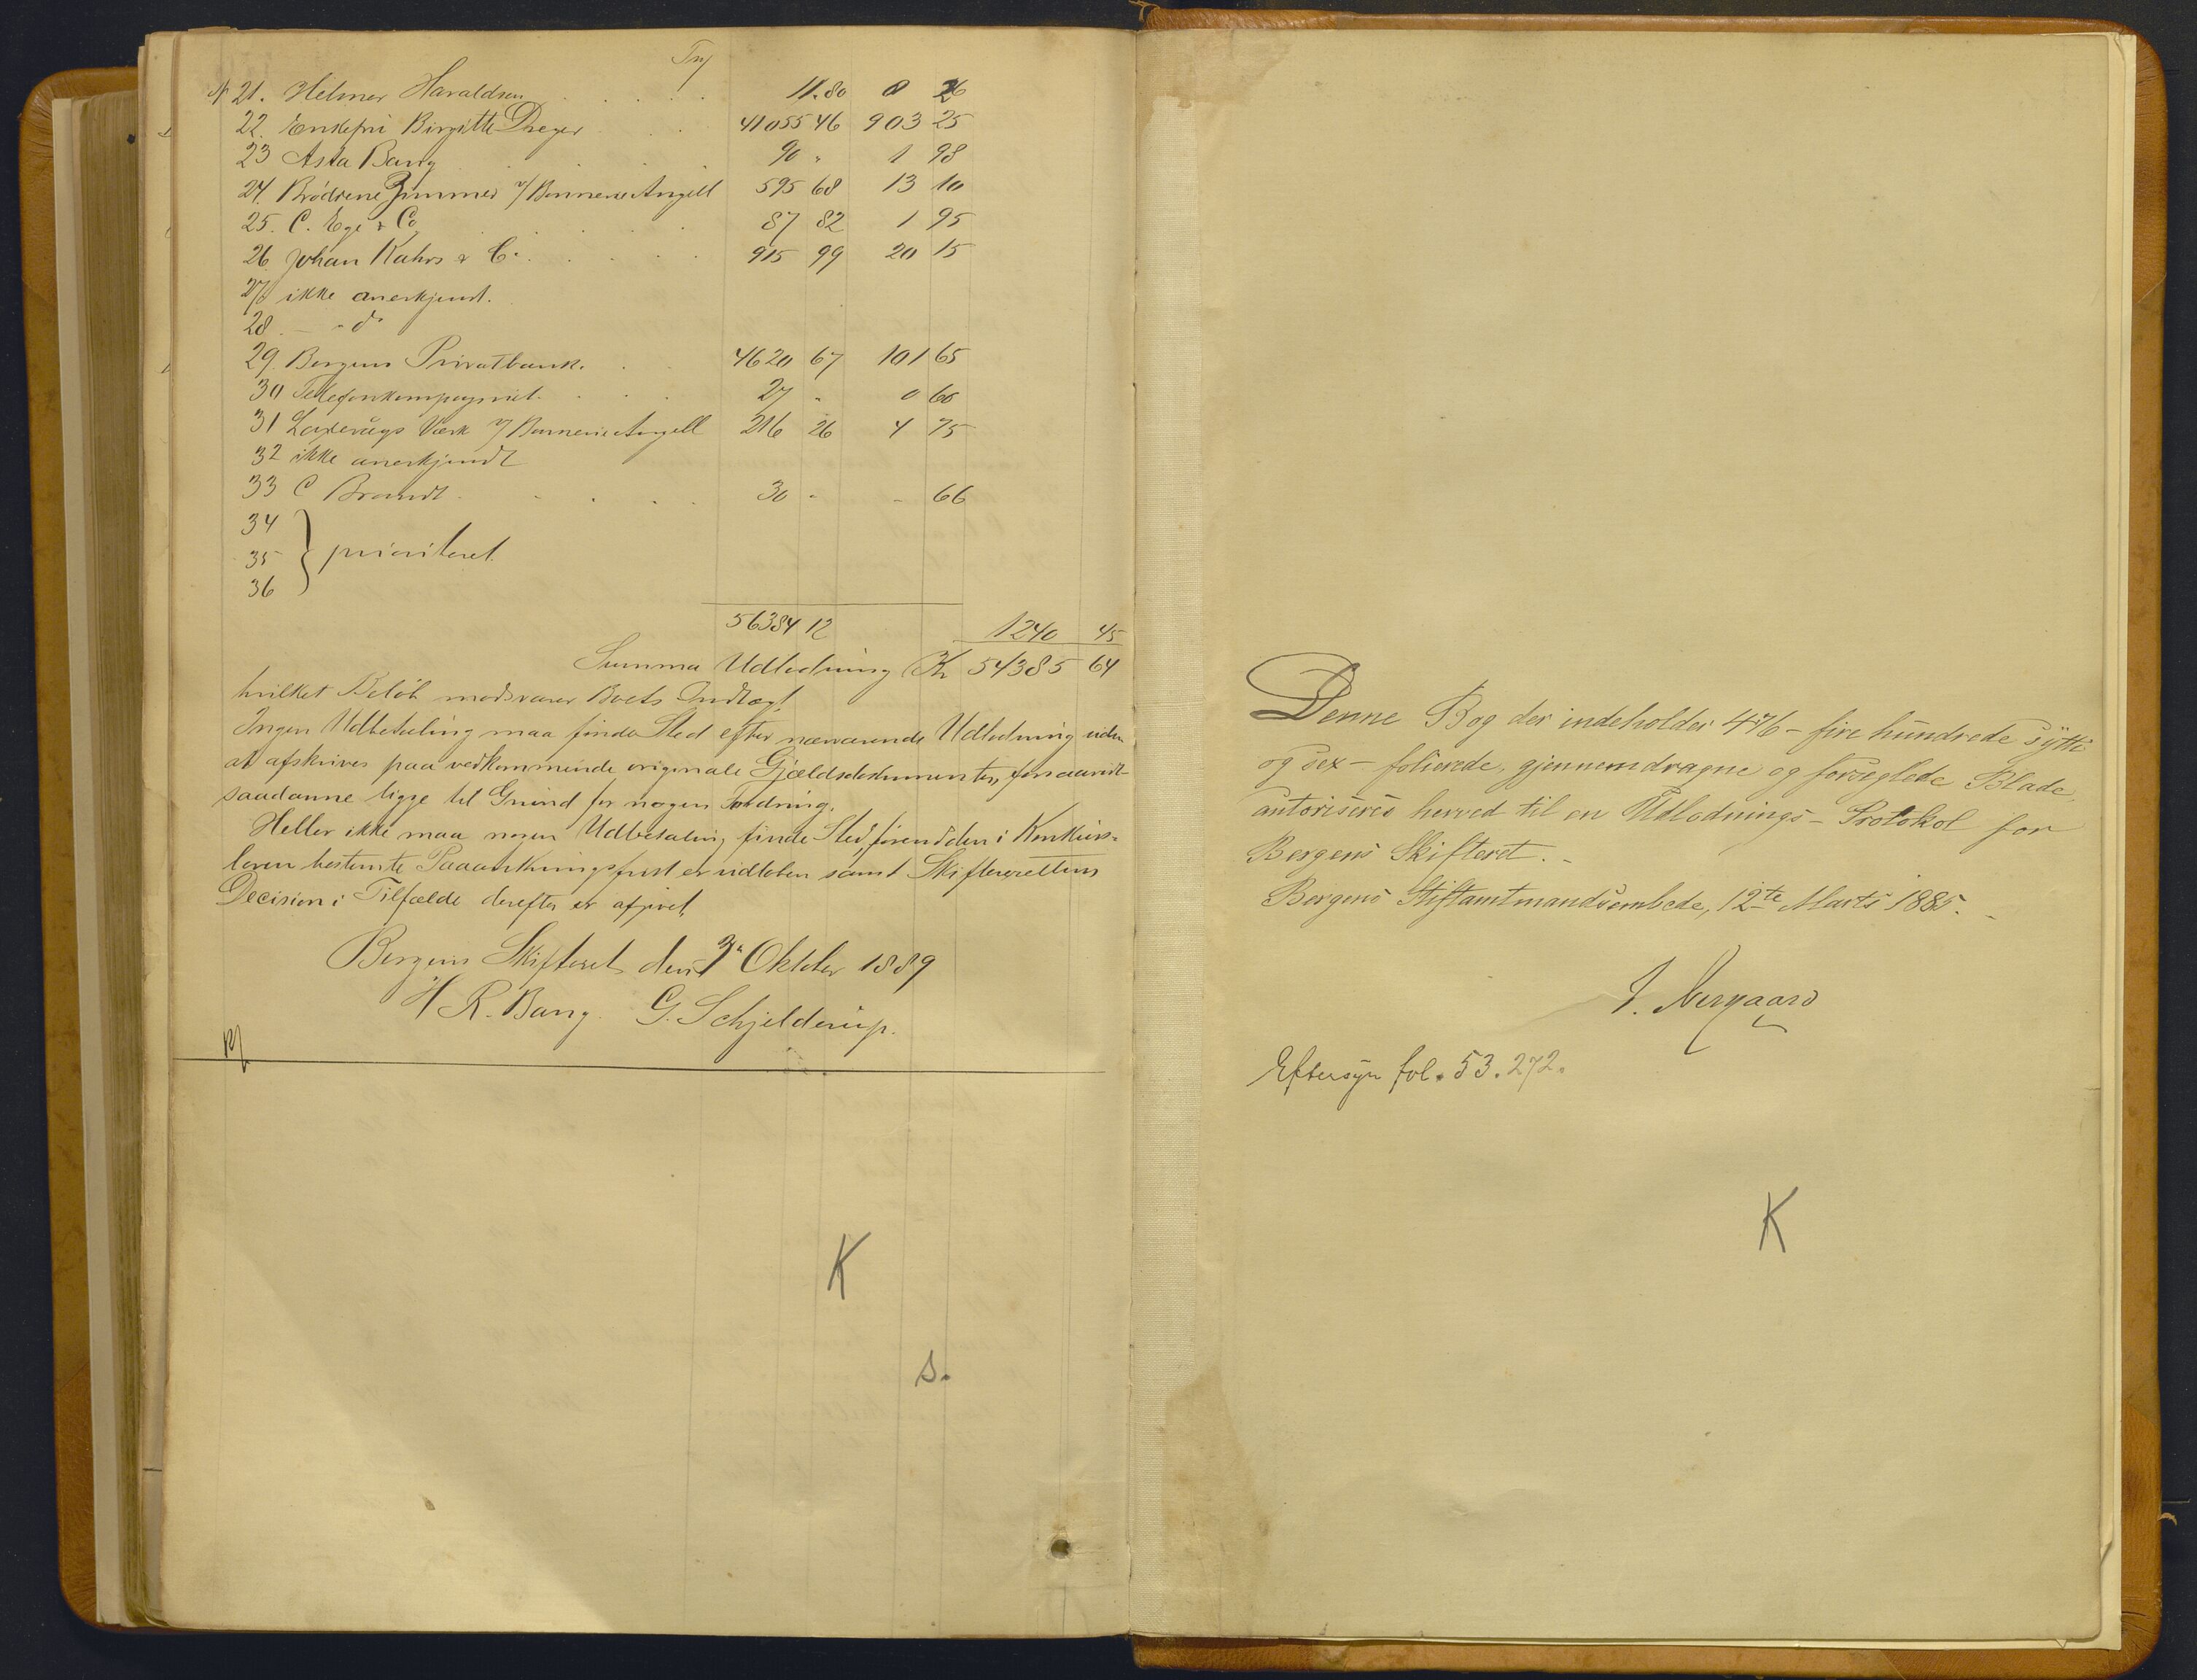 Trf
N 21. Helmer Haraldsen 11.80 0 26
22. Enkefru Birgitte Dreyer 41055 46 903 25
23 Asta Bang 90 " 1 98
24. Brødrene Zimmer v/ Bonnevie Angell 595 68 13 10
25. C. Ege & Co 87 82 1 95
26 Johan Kahrs & Co. 915 99 20 15
27 ikke anerkjendt.
28 — " do
29. Bergens Privatbank. 4620 67 101 65
30 Telefonkompagniet 27 " 0 60
31 Laxevågs Værk v/ Bonnevie Angell 216 26 4 75
32 ikke anerkjendt
33 C Brandt 30 " - 66
34
35 } prioriteret.
36
56384 12 1240 45
Summa Udlodning Kr 54385 64
hvilket Beløb modsvarer Boets Indtægt.
Ingen Udbetaling maa finde Sted efter nærværende Udlodning uden
at afskrives paa vedkommende originale Gjældsdokumenter, forsaavidt
saadanne ligge til Grund for nogen Fordring.
Heller ikke maa nogen Udbetaling finde Sted, førend den i Konkurs-
loven bestemte Paaankningsfrist er udløben samt Skifterettens
Decision i Tilfælde derefter er afgivet.
Bergens Skifteret den 3die Oktober 1889
H R. Bang. G. Schjelderup.
Denne Bog der indeholder 476 – fire hundrede sytti
og sex – folierede, gjennemdragne og forseglede Blade,
autoriseres herved til en Udlodnings-Protokol for
Bergens Skifteret. –
Bergens Stiftamtmandsembede, 12te Marts 1885. –
J. Neergaard
Eftersyn fol. 53. 272.
K
K
S.